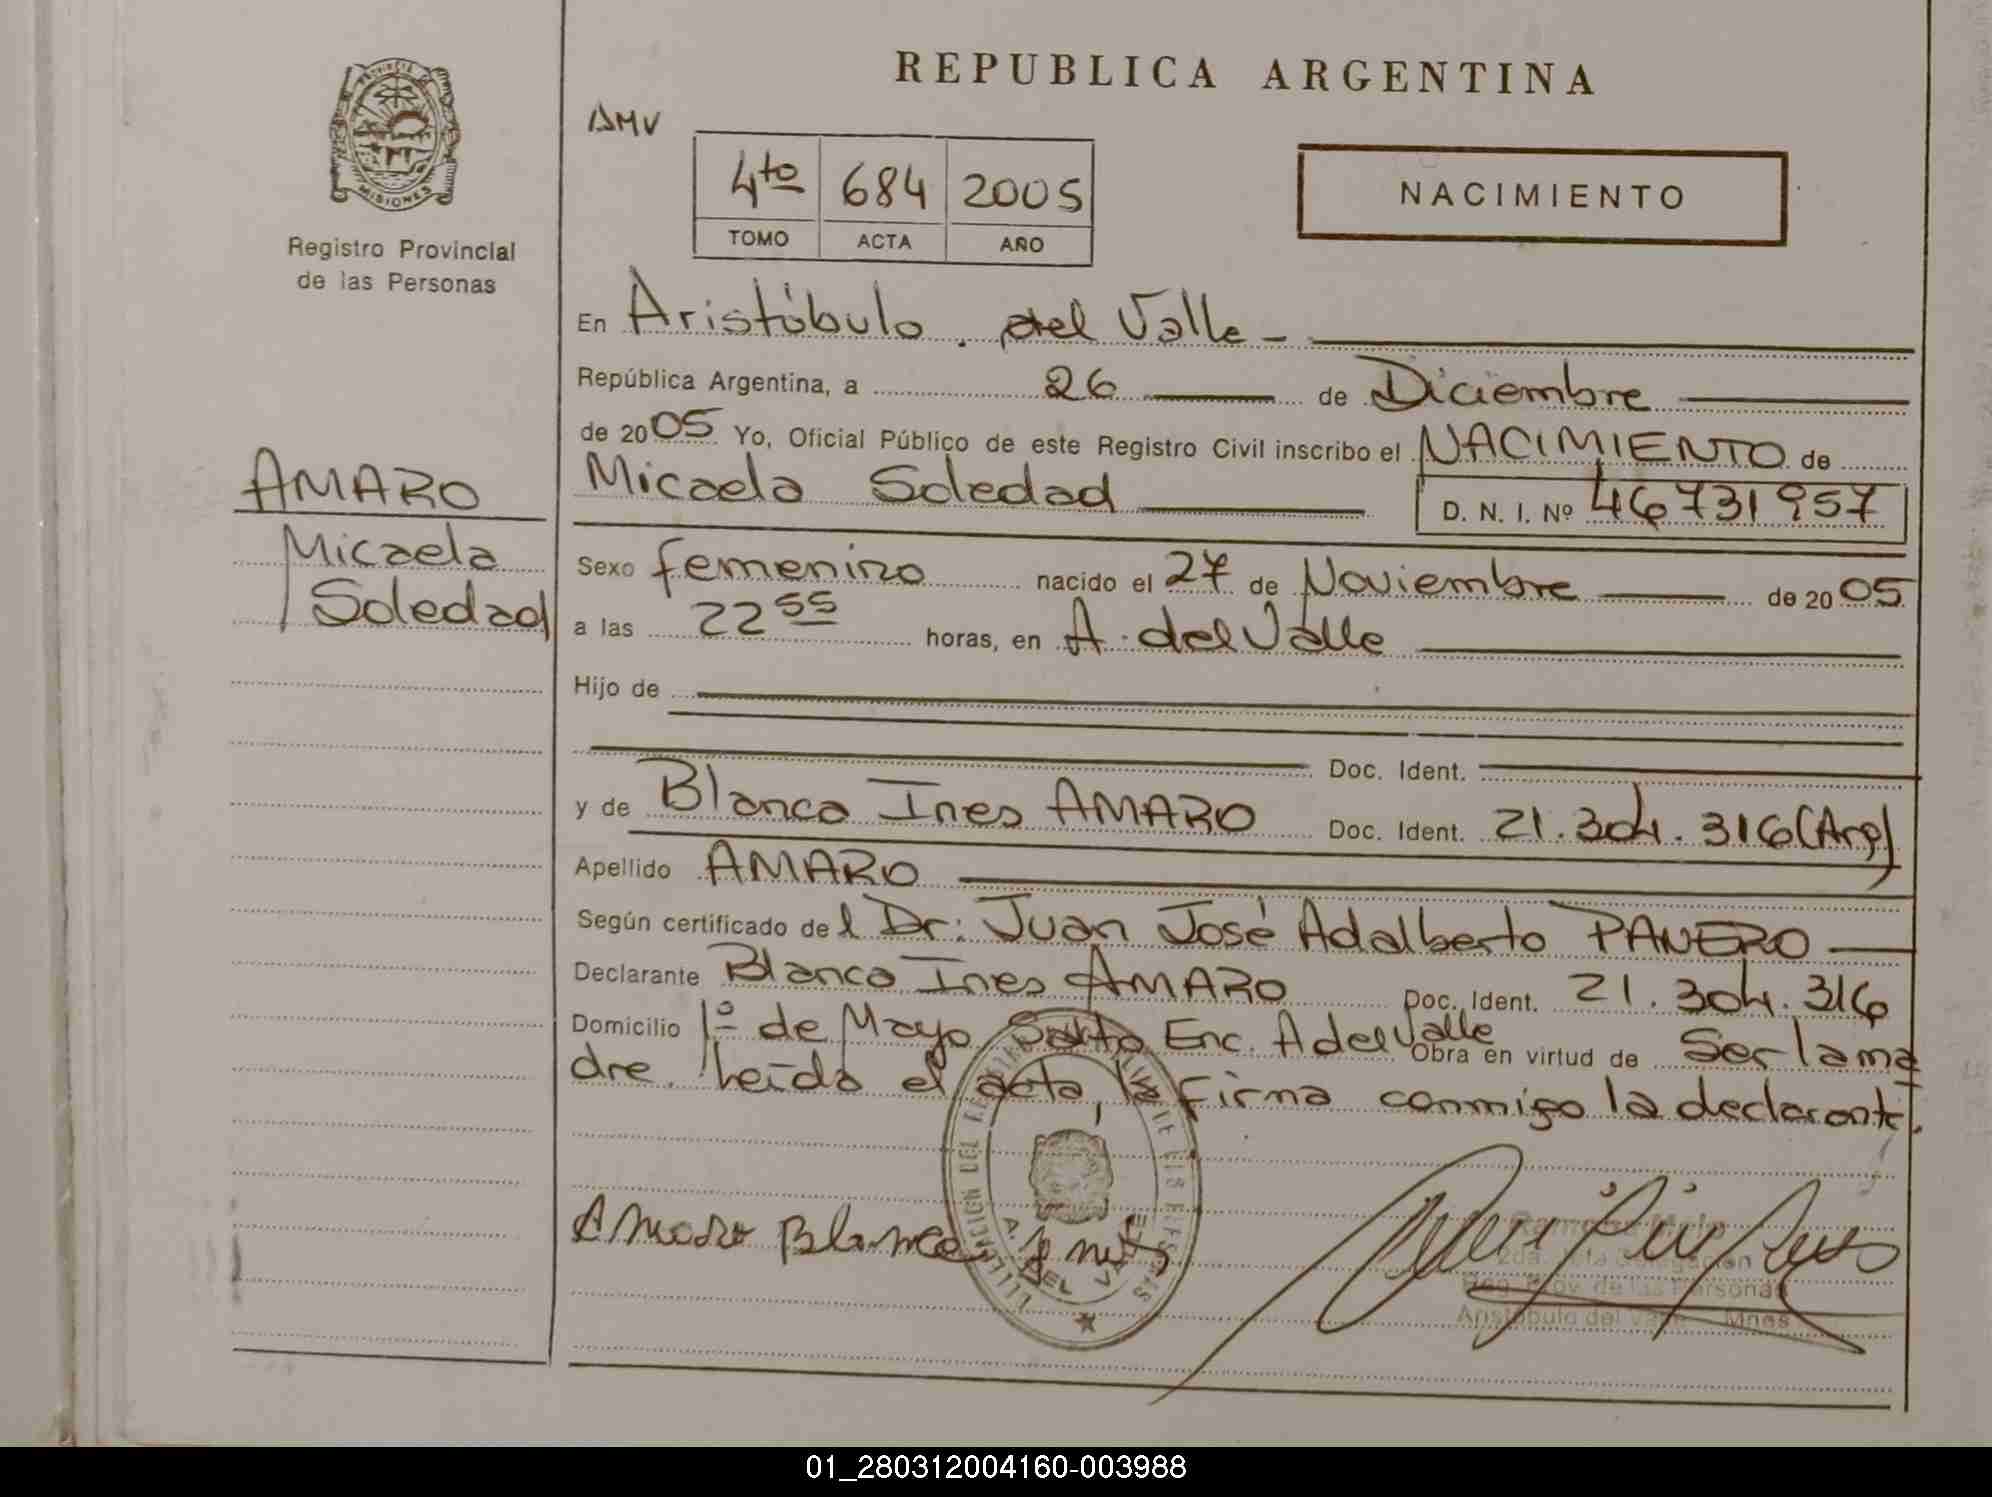 REPUBLICA ARGENTINA
PROVINCIA DE
MISIONES
Registro Provincial
de las Personas
AMV
4to 684 2005
TOMO ACTA AÑO
NACIMIENTO
En Aristóbulo del Valle -
República Argentina, a 26 de Diciembre
de 2005 Yo, Oficial Público de este Registro Civil inscribo el NACIMIENTO de
Micaela Soledad D. N. I. Nº 46731957
AMARO
Micaela
Soledad
Sexo femenino nacido el 27 de Noviembre de 2005
a las 22 55 horas, en A. del Valle
Hijo de
Doc. Ident.
y de Blanca Ines AMARO Doc. Ident. 21.304.316 (Arg)
Apellido AMARO
Según certificado del Dr: Juan José Adalberto PANERO
Declarante Blanca Ines AMARO Doc. Ident. 21.304.316
Domicilio 1º de Mayo Salto Enc. A del Valle Obra en virtud de Ser la ma
dre. Leída el acta, la firma conmigo la declarante.
Amaro Blanca Ines
A. DEL VALLE
2da. Jefa Delegación
Reg. Prov. de las Personas
Aristóbulo del Valle Mnes
01_280312004160-003988